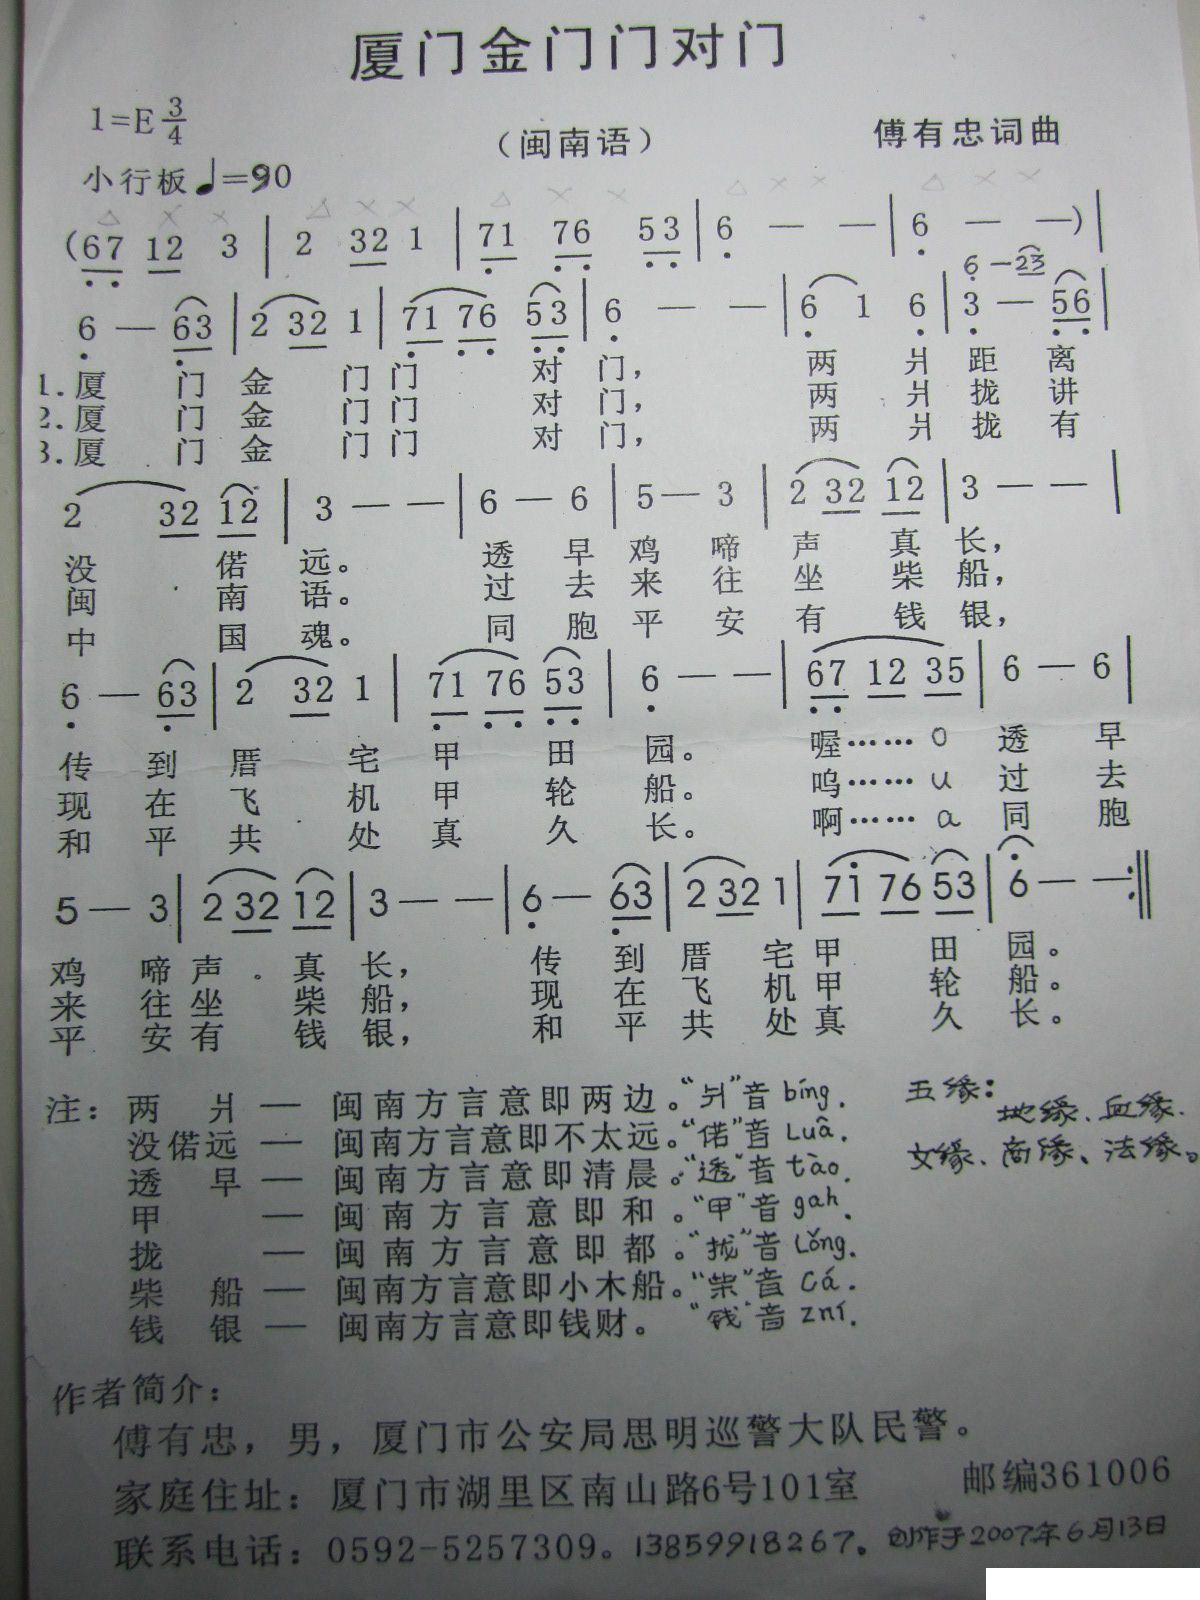 厦门金门门对门
1=E 3/4
（闽南语）
傅有忠词曲
小行板 ♩=90
(67 12 3 | 2 32 1 | 71 76 53 | 6 — — | 6 — —) |
6 — 23
6 — 63 | 2 32 1 | 71 76 53 | 6 — — | 6 1 6 | 3 — 56 |
1.厦 门 金 门 门 对 门， 两 爿 距 离
2.厦 门 金 门 门 对 门， 两 爿 拢 讲
3.厦 门 金 门 门 对 门， 两 爿 拢 有
2 32 12 | 3 — — | 6 — 6 | 5 — 3 | 2 32 12 | 3 — — |
没 偌 远。 透 早 鸡 啼 声 真 长，
闽 南 语。 过 去 来 往 坐 柴 船，
中 国 魂。 同 胞 平 安 有 钱 银，
6 — 63 | 2 32 1 | 71 76 53 | 6 — — | 67 12 35 | 6 — 6 |
传 到 厝 宅 甲 田 园。 喔…… o 透 早
现 在 飞 机 甲 轮 船。 呜…… u 过 去
和 平 共 处 真 久 长。 啊…… a 同 胞
5 — 3 | 2 32 12 | 3 — — | 6 — 63 | 2 32 1 | 71 76 53 | 6 — — :||
鸡 啼 声 真 长， 传 到 厝 宅 甲 田 园。
来 往 坐 柴 船， 现 在 飞 机 甲 轮 船。
平 安 有 钱 银， 和 平 共 处 真 久 长。
注：两 爿 — 闽南方言意即两边。“爿”音 bíng.
没偌远 — 闽南方言意即不太远。“偌”音 Luâ.
透 早 — 闽南方言意即清晨。“透”音 tào.
甲 — 闽南方言意即和。“甲”音 gah.
拢 — 闽南方言意即都。“拢”音 Lǒng.
柴 船 — 闽南方言意即小木船。“柴”音 Cá.
钱 银 — 闽南方言意即钱财。“钱”音 zní.
五缘：
地缘、血缘、
文缘、商缘、法缘。
作者简介：
傅有忠，男，厦门市公安局思明巡警大队民警。
家庭住址：厦门市湖里区南山路6号101室 邮编361006
联系电话：0592-5257309。13859918267。创作于2007年6月13日